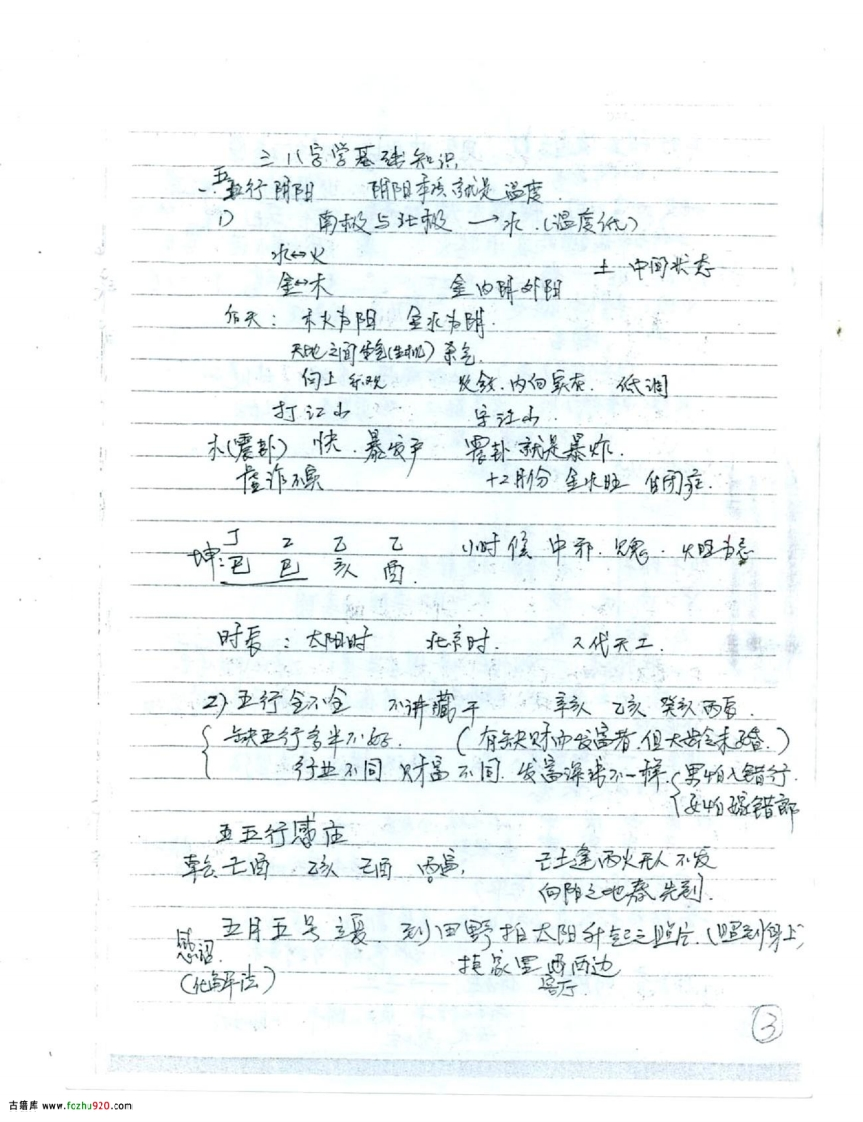 三 八字学基础知识
一. 五行阴阳 阴阳本质就是温度.
1) 南极与北极 → 水.(温度低)
水↔火
金↔木 金内阴外阳 土 中间状态
后天: 木火为阳 金水为阴.
天地之间生气(生机) 杀气.
向上 乐观 收敛.内向实在. 低调
打江山 守江山.
木(震卦) 快. 暴发户 震卦就是暴炸.
虚诈不实 十2月份 金水旺 自闭症.
丁 乙 乙 乙 小时候 中邪. 见鬼. 火旺为忌
坤: 巳 巳 亥 酉.
时辰: 太阳时 北京时. 人代天工.
2) 五行全不全 不讲藏干 辛亥 乙亥 癸亥 丙辰.
缺五行多半不好. (有缺财而发富者.但大龄未婚.)
行业不同 财富不同. 发富深浅不一样. 男怕入错行.
女怕嫁错郎
3. 五行感应
乾: 己酉 乙亥 己酉 己土逢丙火无人不发
向阳之地春先到.
五月五号立夏. 到田野拍太阳升起之照片.(照到身上)
感词.
挂家里西南边
(化解法) 客厅
③
古籍库 www.fczhu920.com